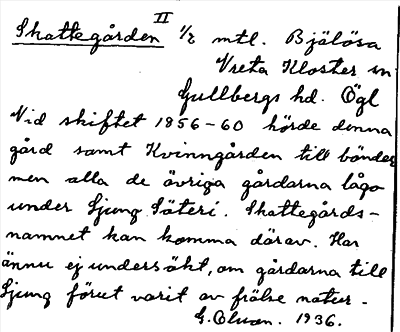 Skattegården II 1/2 mtl. Bjälösa
Vreta Kloster sn
Gullbergs hd. Ögl
Vid skiftet 1856-60 hörde denna
gård samt Kvinngården till bönder
men alla de övriga gårdarna lågo
under Ljung Säteri. Skattegårds-
namnet kan komma därav. Har
ännu ej undersökt, om gårdarna till
Ljung förut varit av frälse natur -
G. Olsson. 1936.